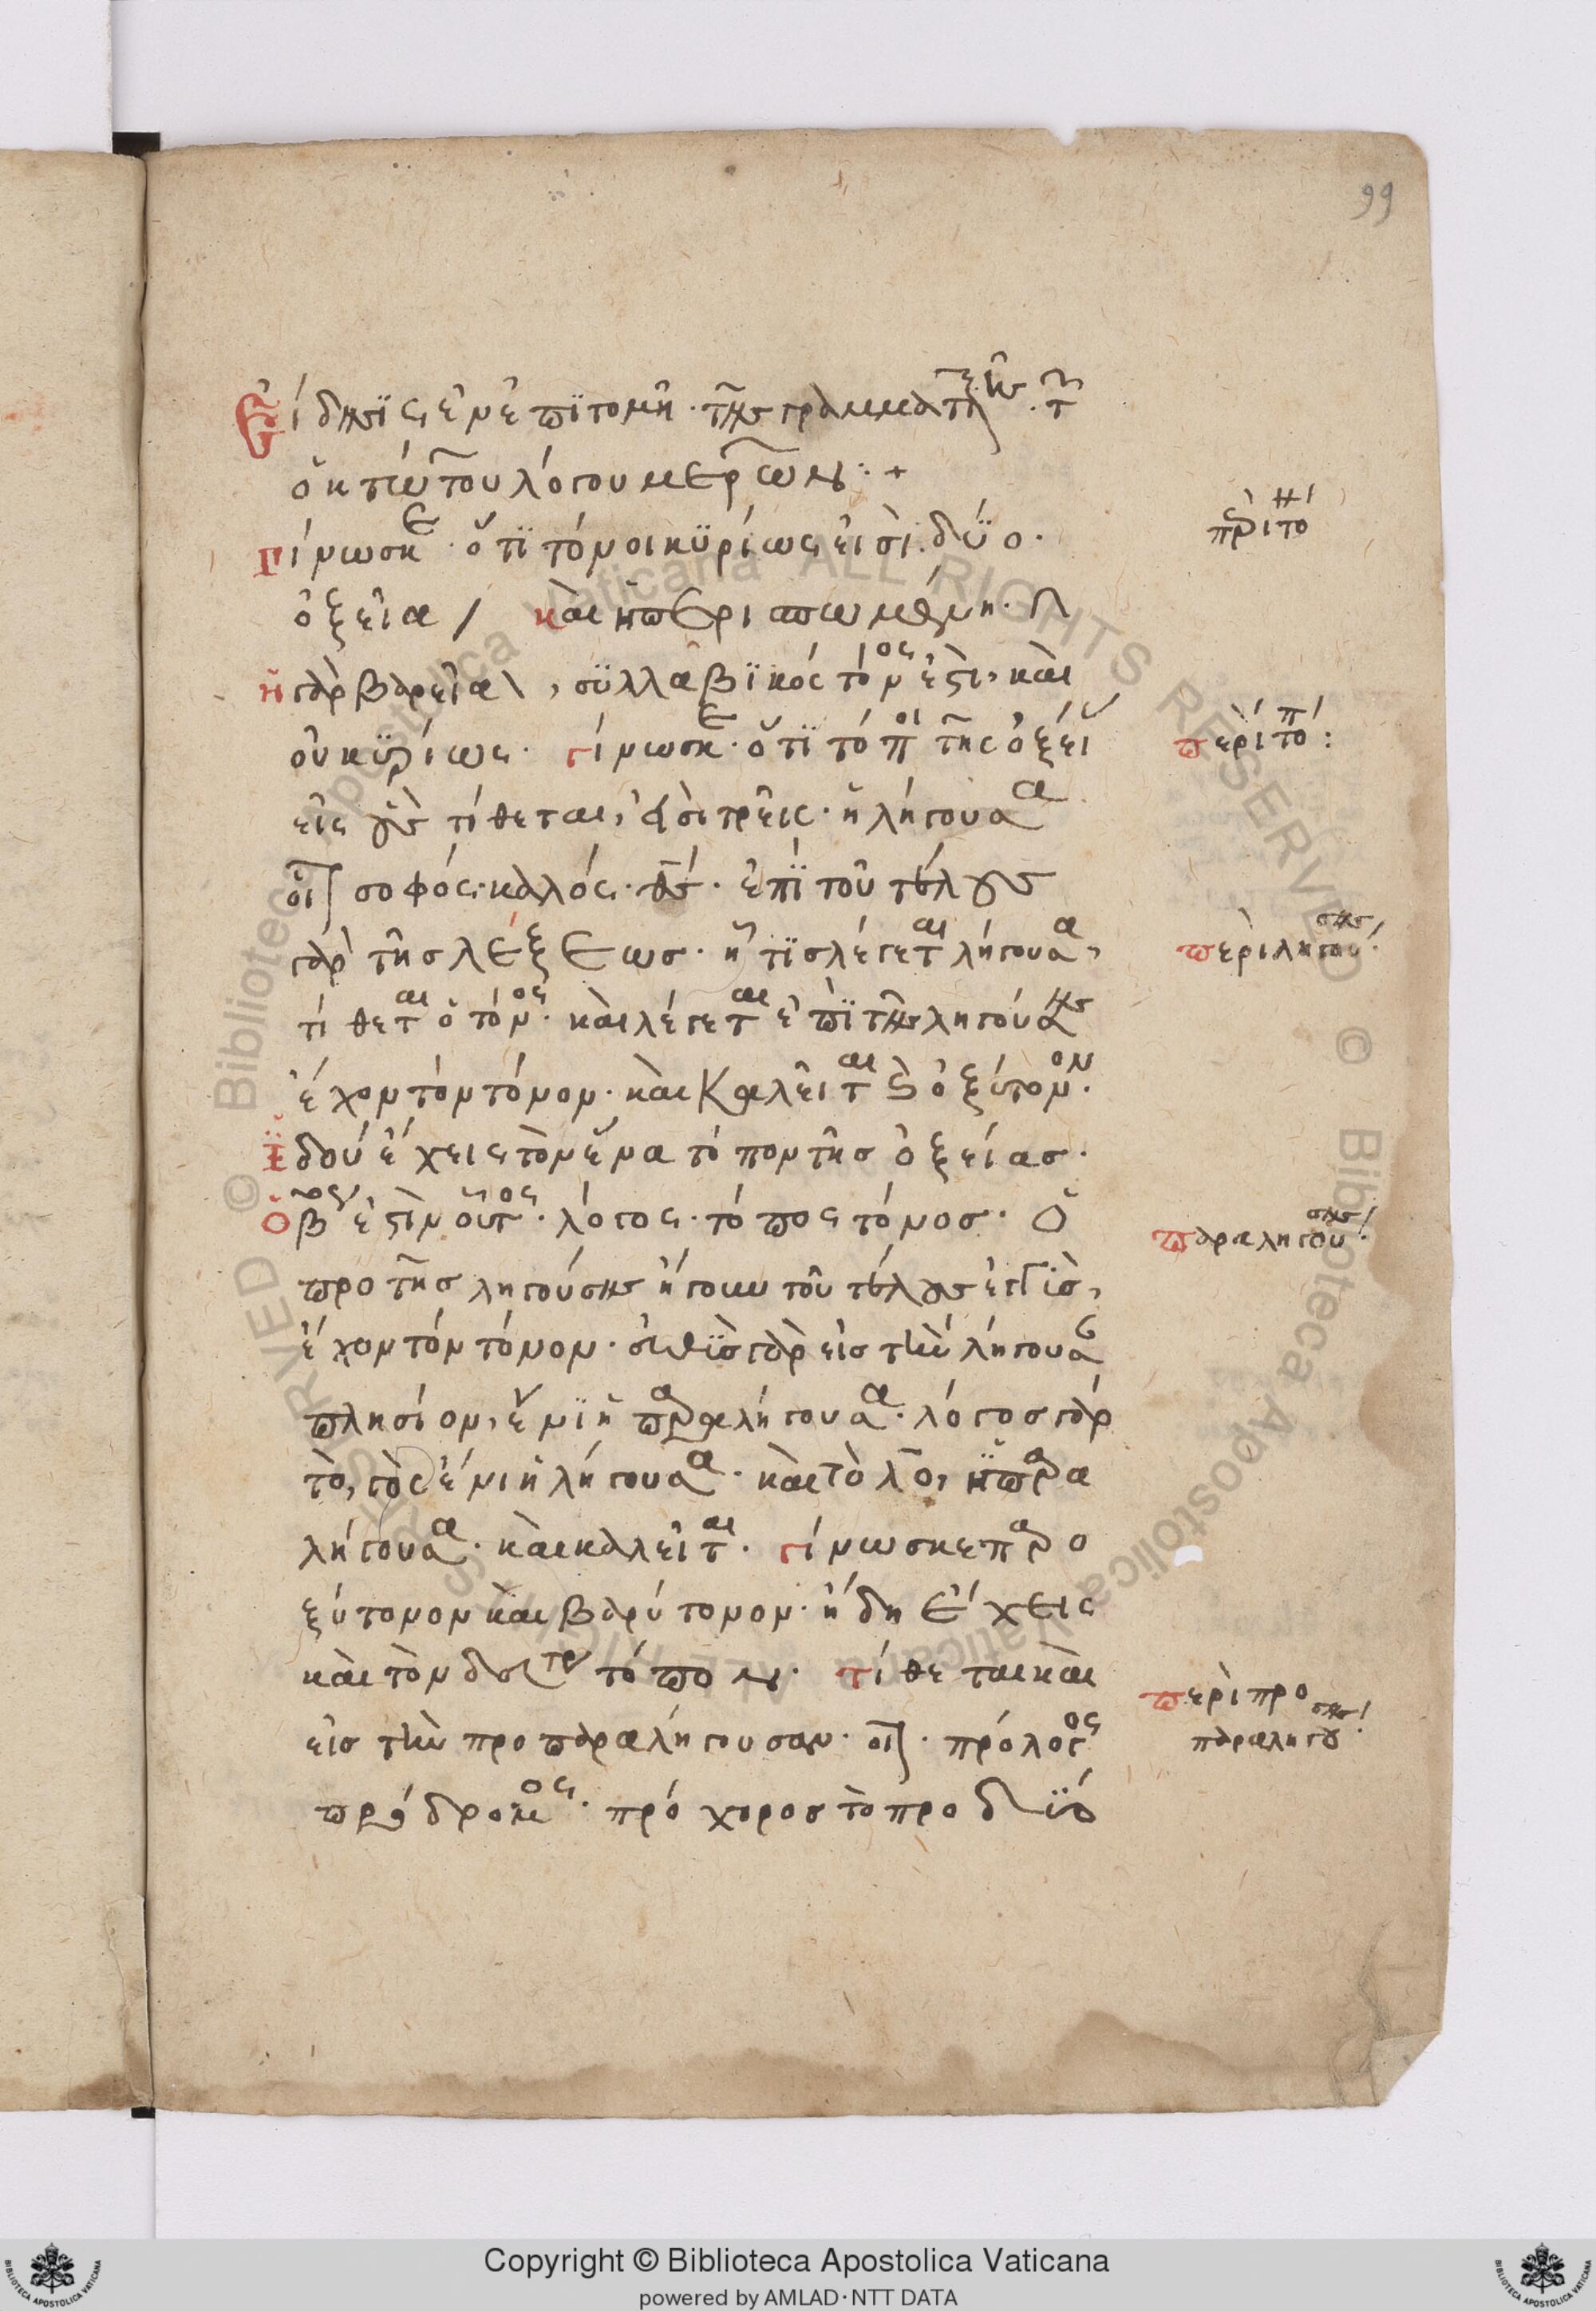 99
Εἴδησις ἐν ἐπιτομῆ τῆς γραμματικῆς. τῶν
ὀκτὼ τοῦ λόγου μερῶν:+
Γίνωσκε ὅτι τόνοι κϋρίως εἰσὶ δύο.
ὀξεῖα / καὶ ἡ περισπωμένη.
ἡ γὰρ βαρεῖα \, συλλαβικὸς τόνος ἐστὶ, καὶ
οὐ κυρίως. γίνωσκε ὅτι τόποι τῆς ὀξείας
εἰς οὓς τίθεται, εἰσὶ τρεῖς. ἡ λήγουσα
οἷον σοφός. καλός. ἐπὶ τοῦ τέλους
γὰρ τῆς λέξεως. ἥτις λέγεται λήγουσα,
τίθεται ὁ τόνος. καὶ λέγεται ἐπὶ τῆς ληγούσης
ἔχον τὸν τόνον. καὶ καλεῖται ὀξύτονον.
ἰδοὺ ἔχεις τὸν ἕνα τόπον τῆς ὀξείας.
ὁ βος ἐστὶν οὗτος. λόγος. τόπος τόνος. ὁ
προ τῆς ληγούσης ἤγουν τοῦ τέλους ἐστὶς,
ἔχον τὸν τόνον. εὐθὺς γὰρ εἰς τὴν λήγουσαν
πλησίον, ἔνι ἡ παραλήγουσα. λόγος γὰρ
τὸ, γος ἔνι ἡ λήγουσα. καὶ τὸ λο, ἡ παρα
λήγουσα. καὶ καλεῖται. γίνωσκε παρο
ξύτονον καὶ βαρύτονον. ἤδη ἔχεις
καὶ τὸν δεύτερον τόπον. τίθεται καὶ
εἰς τὴν προπαραλήγουσαν. οἷον. πρόλογος
πρόδρομος. πρόχορος τὸ προ διὸ
περὶ τό
περὶ τό:
περὶ ληγούσης
παραληγούσης
περὶ προ
παραληγούσης
Copyright © Biblioteca Apostolica Vaticana
powered by AMLAD·NTT DATA